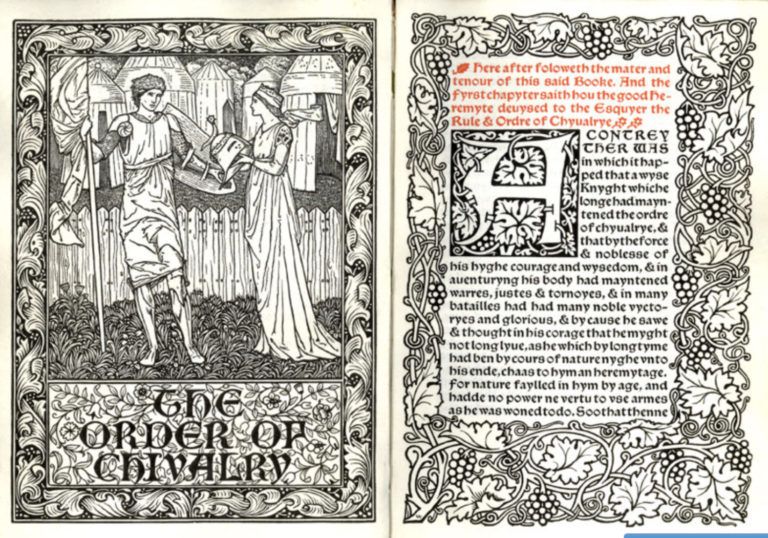 THE
ORDER OF
CHIVALRY
Here after foloweth the mater and
tenour of this said Booke. And the
fyrst chapyter saith hou the good he-
remyte deuysed to the Esquyer the
Rule & Ordre of Chyualrye.
A CONTREY
THER WAS
in which it hap-
ped that a wyse
Knyght whiche
longe had mayn-
tened the ordre
of chyualrye, &
that by the force
& noblesse of
his hyghe courage and wysedom, & in
auenturyng his body had mayntened
warres, justes & tornoyes, & in many
batailles had had many noble vycto-
ryes and glorious, & by cause he sawe
& thought in his corage that he myght
not long lyue, as he which by long tyme
had ben by cours of nature nyghe vnto
his ende, chaas to hym an heremytage.
For nature faylled in hym by age, and
hadde no power ne vertu to vse armes
as he was woned to do. Soo that thenne